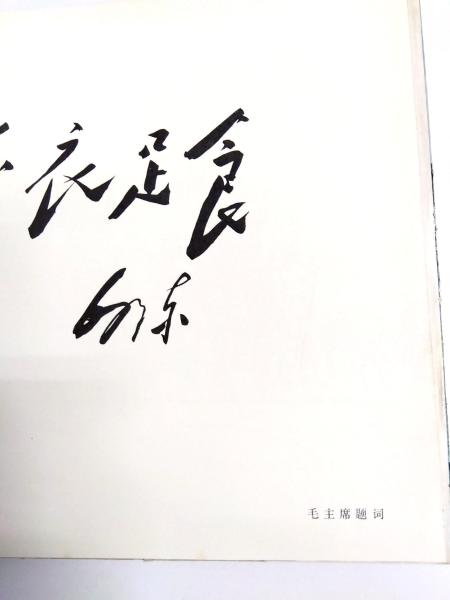 衣足食
泽东
毛主席题词